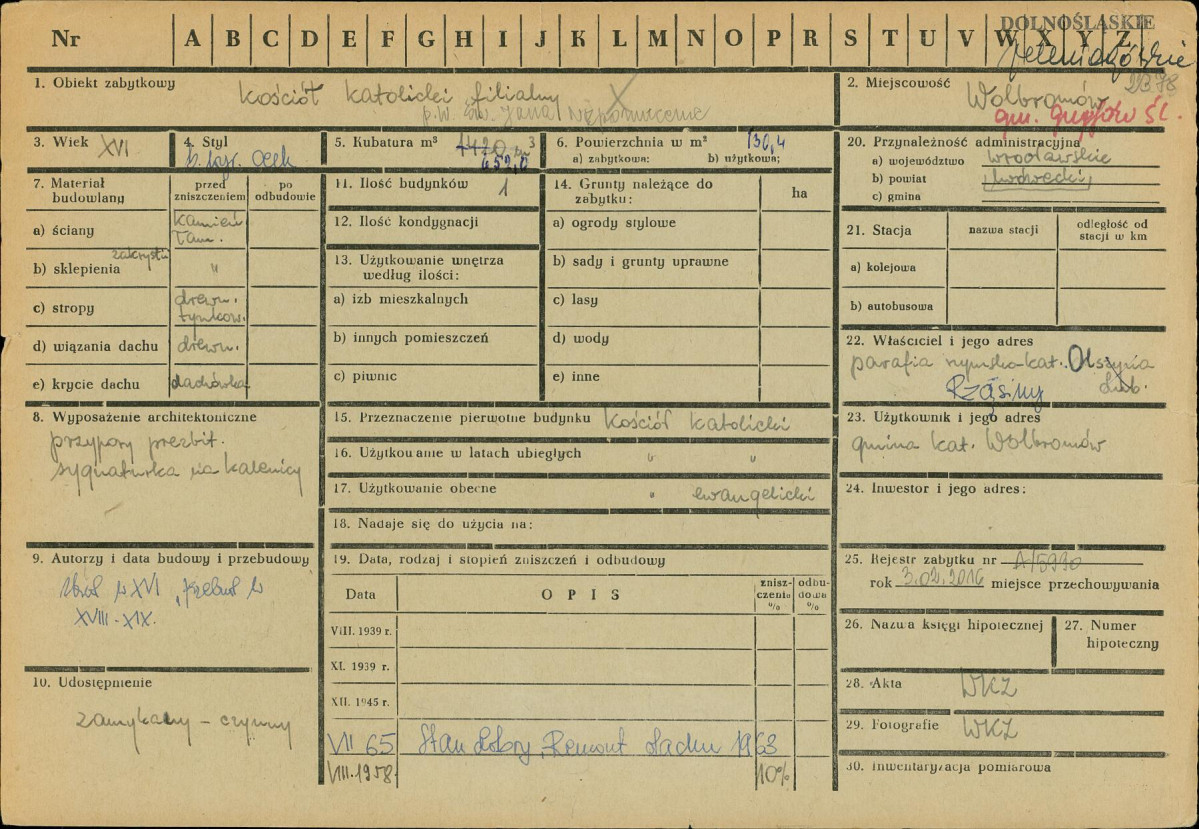 DOLNOŚLĄSKIE
Nr A B C D E F G H I J K L M N O P R S T U V W X Y Z
Jeleniogórskie
1. Obiekt zabytkowy
Kościół katolicki filialny
p.w. św. Jana Nepomucena
2. Miejscowość
2378
Wolbromów
gm. Gryfów Śl.
3. Wiek XVI
4. Styl
5. Kubatura m³
1420 m³
652,0
6. Powierzchnia w m²
130,4
a) zabytkowa; b) użytkowa;
20. Przynależność administracyjna
a) województwo wrocławskie
b) powiat lwówecki
c) gmina
7. Materiał budowlany
przed zniszczeniem
po odbudowie
a) ściany
kamień
łam.
b) sklepienia
zakrystii
"
c) stropy
drewn.
tynkow.
d) wiązania dachu
drewn.
e) krycie dachu
dachówka
11. Ilość budynków
1
12. Ilość kondygnacji
13. Użytkowanie wnętrza
według ilości:
a) izb mieszkalnych
b) innych pomieszczeń
c) piwnic
14. Grunty należące do
zabytku:
ha
a) ogrody stylowe
b) sady i grunty uprawne
c) lasy
d) wody
e) inne
21. Stacja
nazwa stacji
odległość od
stacji w km
a) kolejowa
b) autobusowa
22. Właściciel i jego adres
parafia rzymsko-kat. Olszyna
Lub.
Rząsiny
8. Wyposażenie architektoniczne
przypory prezbit.
sygnaturka na kalenicy
15. Przeznaczenie pierwotne budynku Kościół katolicki
16. Użytkowanie w latach ubiegłych " "
17. Użytkowanie obecne " ewangelicki
18. Nadaje się do użycia na:
23. Użytkownik i jego adres
gmina kat. Wolbromów
24. Inwestor i jego adres:
9. Autorzy i data budowy i przebudowy
Zbud. w XVI, przebud. w
XVIII-XIX.
19. Data, rodzaj i stopień zniszczeń i odbudowy
Data
OPIS
znisz-
czenia
%
odbu-
dowa
%
VIII. 1939 r.
XI. 1939 r.
XII. 1945 r.
VII 65 Stan dobry, Remont dachu 1963
VIII.1958. 10%
25. Rejestr zabytku nr A/5990
rok 3.02.2016 miejsce przechowywania
26. Nazwa księgi hipotecznej
27. Numer
hipoteczny
10. Udostępnienie
zamykany - czynny
28. Akta WKZ
29. Fotografie WKZ
30. Inwentaryzacja pomiarowa